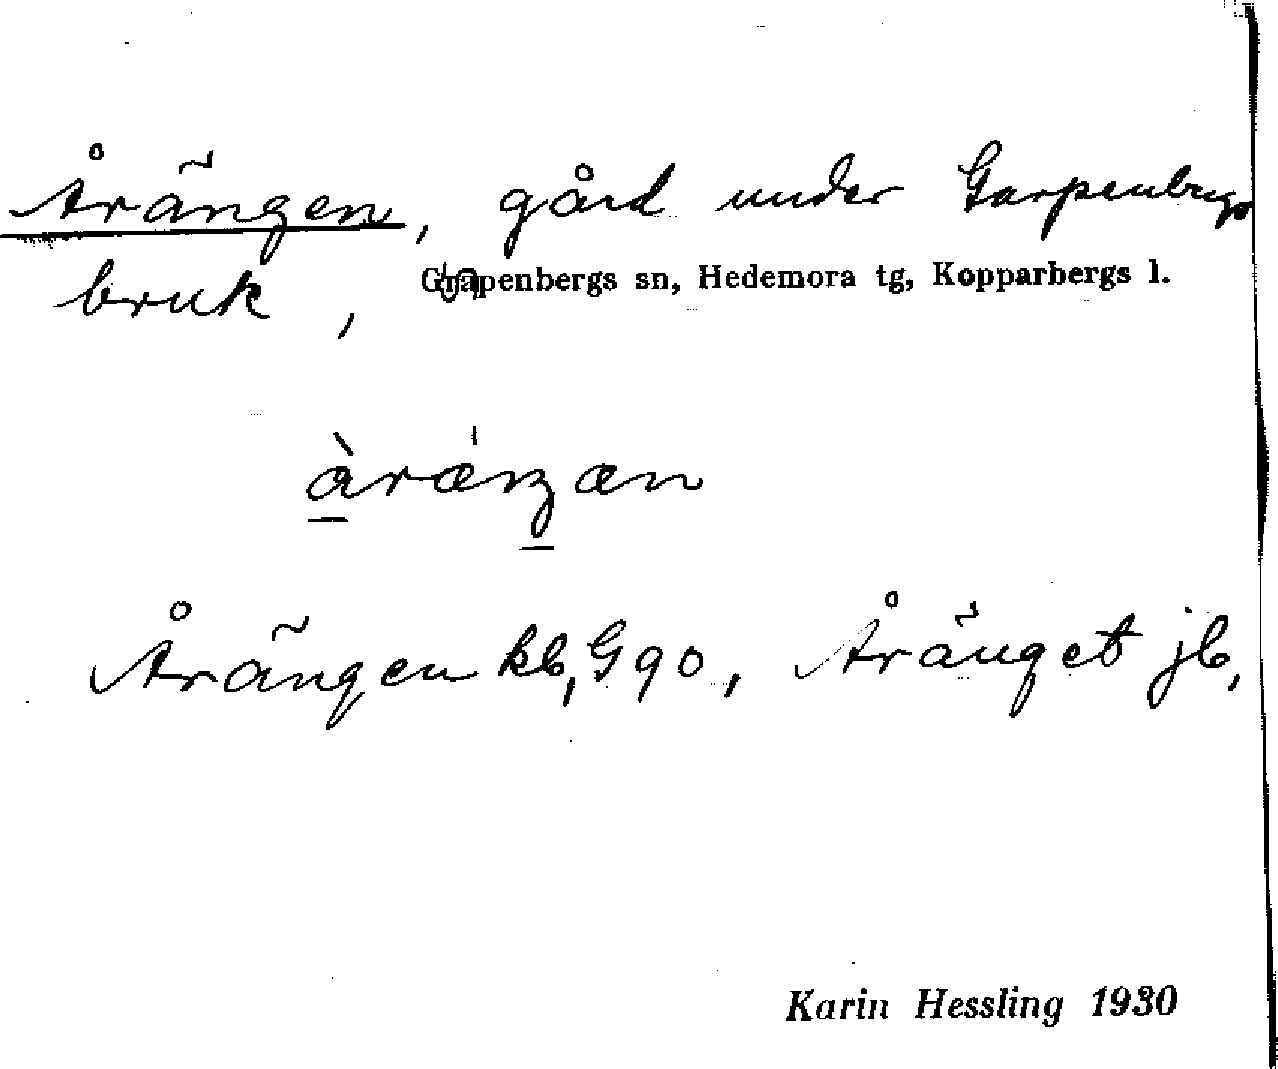 Årängen, gård under Garpenbergs
bruk, Garpenbergs sn, Hedemora tg, Kopparbergs l.
Årängen kb, G90, Århänget jb,
Karin Hessling 1930